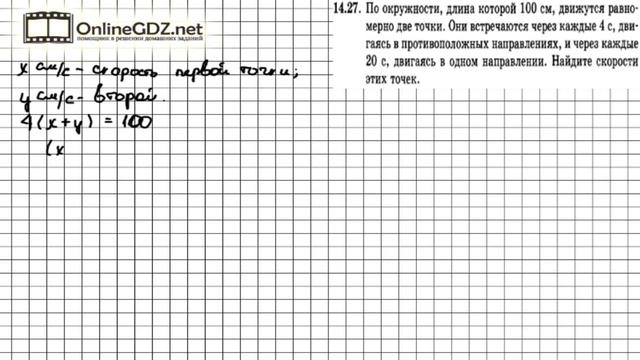 OnlineGDZ.net
помощник в решении домашних заданий
14.27. По окружности, длина которой 100 см, движутся равно-
мерно две точки. Они встречаются через каждые 4 с, дви-
гаясь в противоположных направлениях, и через каждые
20 с, двигаясь в одном направлении. Найдите скорости
этих точек.
x см/с – скорость первой точки;
y см/с – второй.
4(x+y) = 100
(x